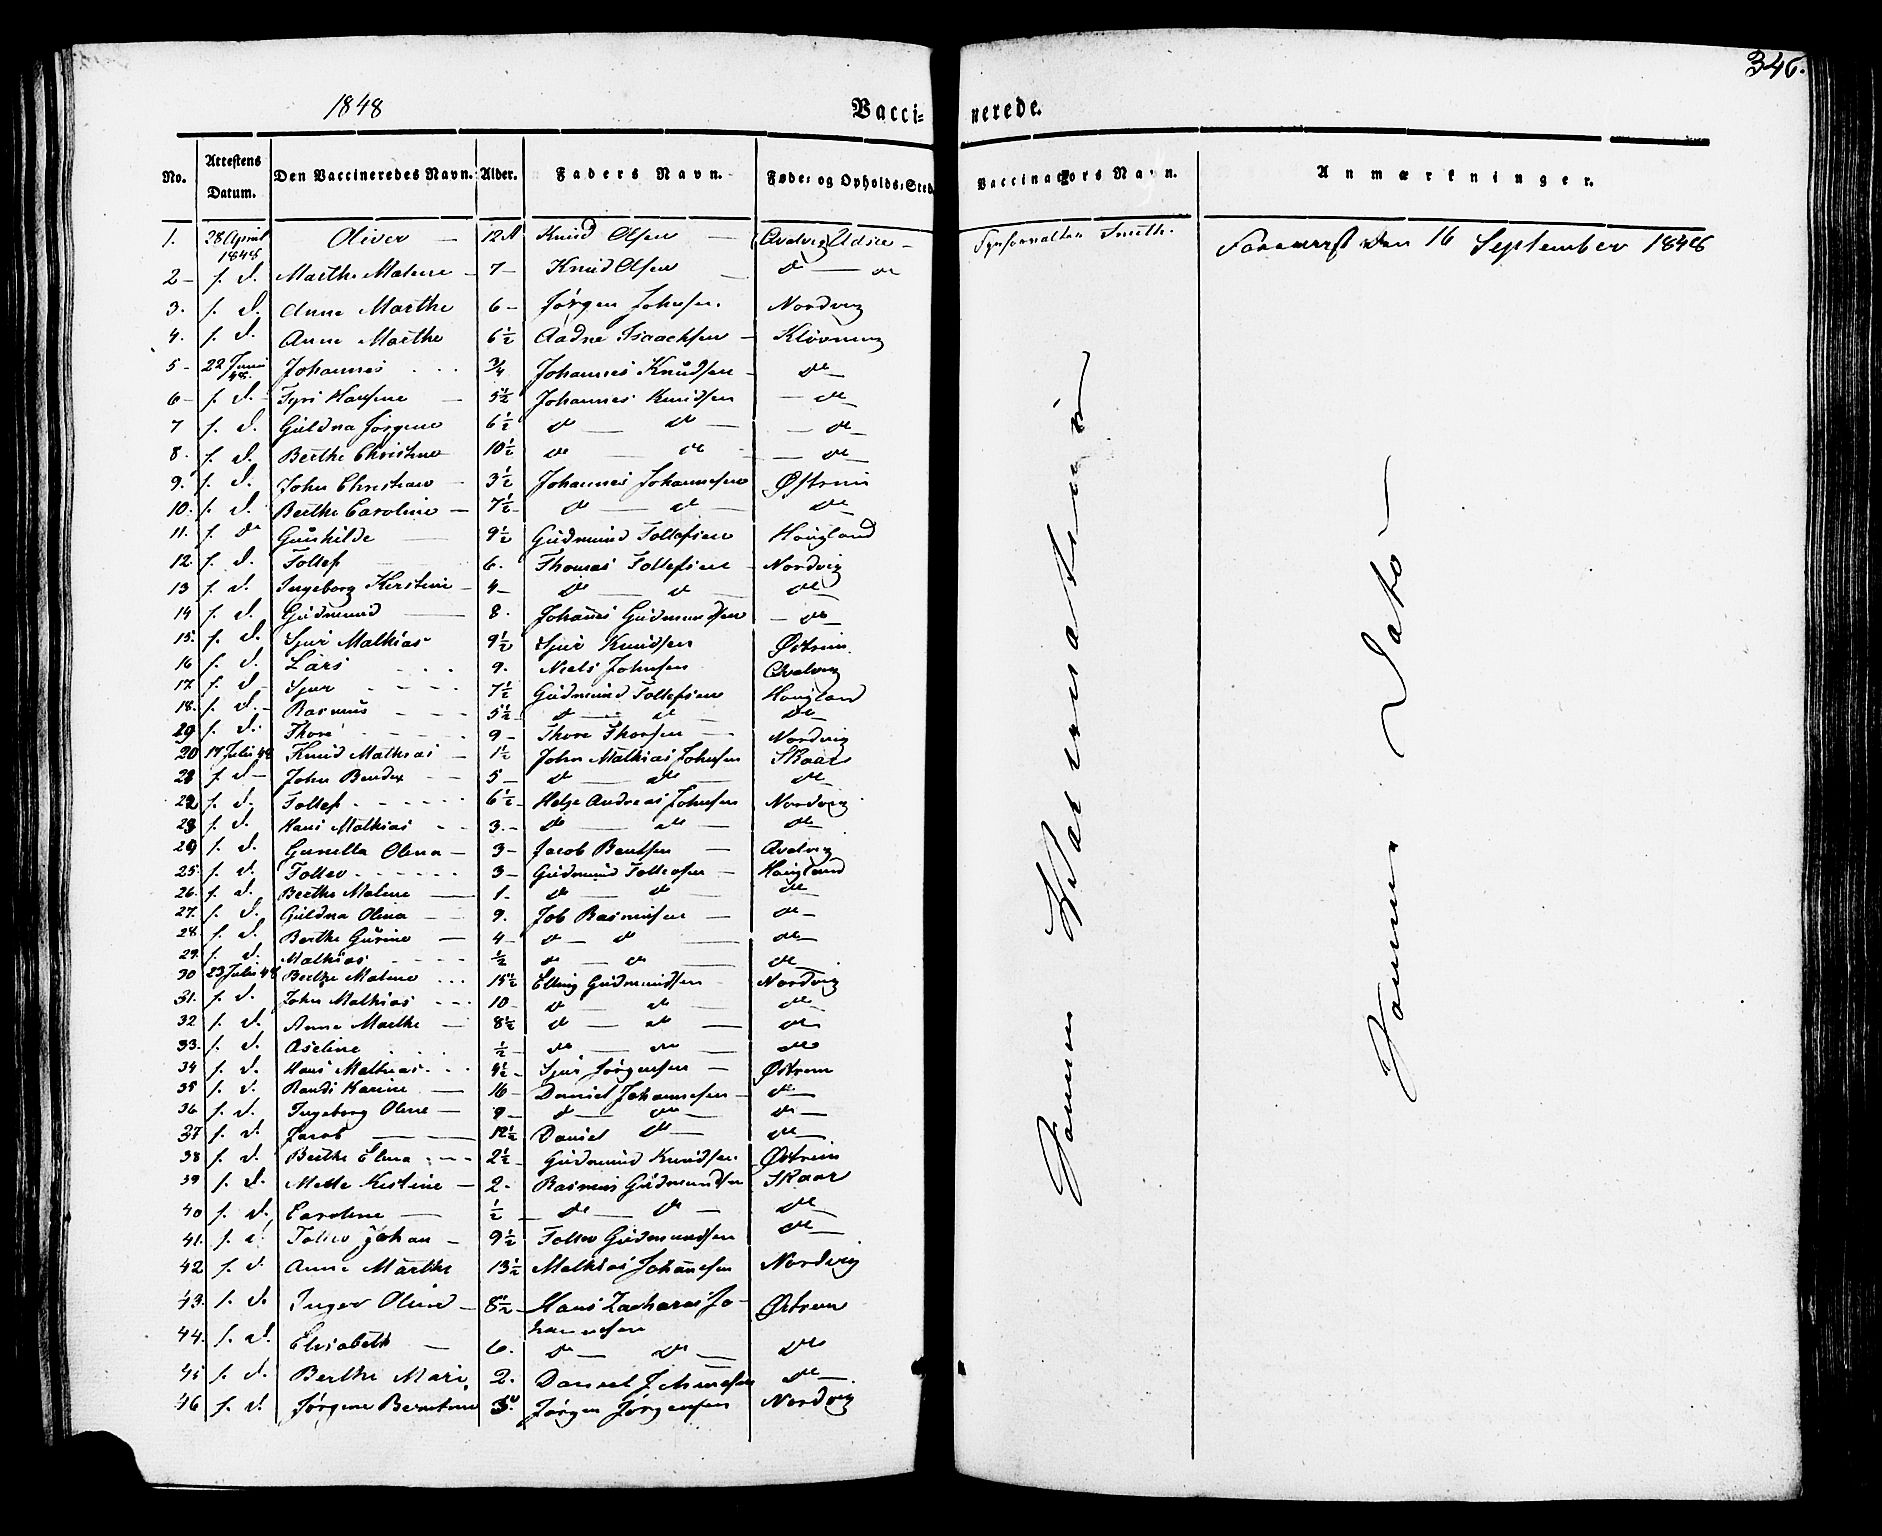 346.
1848
Vaccinerede.
No. Attestens Datum. Den Vaccineredes Navn. Alder. Faders Navn. Føde- og Opholds-Sted Vaccinateurs Navn. Anmærkninger.
1. 28 April 1848 Oliver — 12 A Knud Olsen — Qvalvig Udsire Smith. Foreviist den 16 September 1848
2 — s. d. Marthe Malene — 7 — Knud Olsen — do — do
3. s. d. Anne Marthe 6 — Jørgen Johnsen. Nordvig
4. s. d. Anne Marthe 6½ Aadne Isaachsen — Kløvning
5 — 22 Juni 48. Johannes 3/4 Johannes Knudsen — do —
6 — s. d. Tyri Hansine — 5½ Johannes Knudsen — do —
7 s. d. Guldna Jørgine 6½ do — do — — do —
8. s. d. Berthe Christine 10½ do — do — do —
9. s. d. John Christian 3½ Johannes Johannesen Østrem
10. s. d. Berthe Caroline — 7½ — do — do — do —
11. s. do Gunhilde — 9½ Gudmund Tollefsen Hougland
12. s. d. Tollef 6. Thomas Tollefsen — Nordvig
13 s. d. Ingeborg Kirstine — 4 — do — do do —
14 s. d. Gudmund — 8. Johanes Gudmundsen — do —
15. s. d. Sjur Mathias 9½ Sjur Knudsen Østrem.
16 s. d. Lars 9. Niels Johnsen Qvalvig
17 s. d. — Sjur 7½ Gudmund Tollefsen Hougland
18. s. d. — Rasmus 5½ — do — do — do —
19 s. d. Thore 9 — Thore Thorsen — Nordvig
20 17 Juli 48 Knud Mathias — 1½ John Mathias Johnsen Skaar
21 s. d — John Bendix 5 — do — do — do —
22 s. d. Tollef 6½ — Helge Andreas Johnsen Nordvig
23 s. d. Hans Mathias 3. — do — do — do —
24 s. d. Gunella Olena — 3 — Jacob Bentsen — Qvalvig
25. s. d. Tollev 3 — Gudmund Tollefsen — Hougland
26. s. d. Berthe Malene — 1. — do — do — do —
27. s. d. Guldna Olena 9. Job Rasmusen — do —
28. s. d. Berthe Gurine — 4 — do — do — do —
29. s. d. Mathias ½ do — do — do —
30 23 Julii 48 Berthe Malene 15½ Elling Gudmundsen Nordvig
31. s. d. John Mathias 10 — do — do — do —
32 s. d. Anne Marthe — 8½ do — do — do
33. s. d. Aseline ½ — do — do — do
34 s. d. Hans Mathias 4½ — Sjur Jørgensen — Østrem
35 s. d. Randi Karine — 16 — Daniel Johannesen — do —
36 s. d. Ingeborg Oline — 9 — do — do — do —
37 s. d. Jacob — 12½ Daniel do — do —
38 s. d. Berthe Elena 2½ — Gudmund Knudsen. Østrem
39 s. d. Mette Kistine — 2. Rasmus Gudmundsen Skaar
40 s. d. Caroline — ½ — do — do — do —
41. s. d Tollev Johan — 9½ Tollev Gudmundsen do —
42 s. d. Anne Marthe 13½ Mathias Johanesen Nordvig
43. s. d. Inger Oline — 8½ — Hans Zacharias Johannesen Østrem
44. s. d. Elisabeth — 6. do — do — do
45 s. d. Berthe Mari 2. Daniel Johnesen do —
46 s. d. Jørgine Berntine 3. Jørgen Jørgensen Nordvig
Samme
Samme Dato